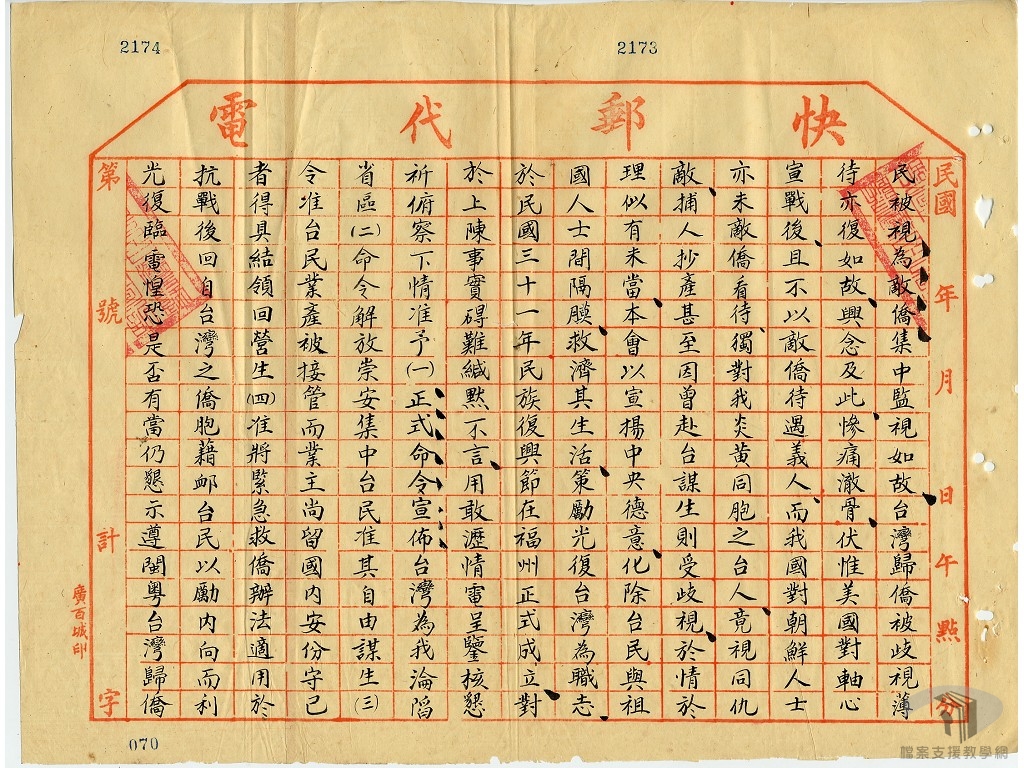 2174
2173
快郵代電
民國 年 月 日 午 點 分
民被視為敵僑集中監視如故台灣歸僑被歧視薄
待亦復如故興念及此慘痛澈骨伏惟美國對軸心
宣戰後且不以敵僑待遇義人而我國對朝鮮人士
亦未敵僑看待獨對我炎黃同胞之台人竟視同仇
敵捕人抄產甚至因曾赴台謀生則受歧視於情於
理似有未當本會以宣揚中央德意化除台民與祖
國人士間隔膜救濟其生活策勵光復台灣為職志
於民國三十一年民族復興節在福州正式成立對
於上陳事實碍難緘默不言用敢瀝情電呈鑒核懇
祈俯察下情准予㈠正式命令宣佈台灣為我淪陷
省區㈡命令解放崇安集中台民准其自由謀生㈢
令准台民業產被接管而業主尚留國內安份守己
者得具結領回營生㈣准將緊急救僑辦法適用於
抗戰後回自台灣之僑胞藉卹台民以勵內向而利
光復臨電惶恐是否有當仍懇示遵閩粵台灣歸僑
第 號 計 字
廣百城印
070
檔案支援教學網